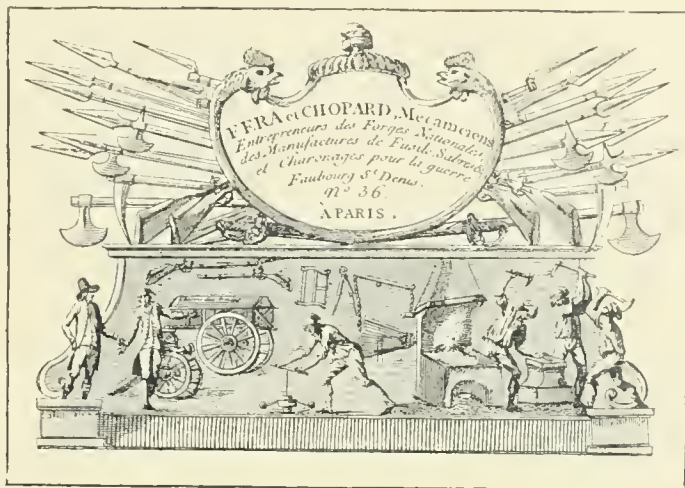 FERA et CHOPARD, Mecaniciens
Entrepreneurs des Forges Nationales,
des Manufactures de Fusil, Sabres &
et Charonages pour la guerre
Faubourg St Denis.
nº 36.
À PARIS.